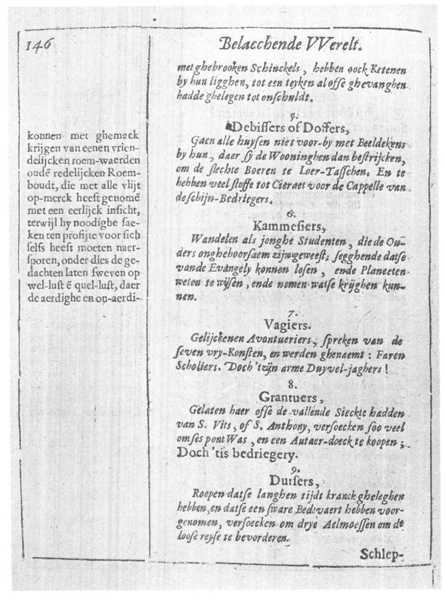 146
Belacchende VVerelt.
met ghebrooken Schinckels, hebben oock Ketenen
by hun ligghen, tot een teyken alosse ghevanghen
hadde ghelegen tot onschuldt.
5.
Debissers of Doffers,
Gaen alle huysen niet voor-by met Beeldekens
by hun, daer sy de Wooninghen dan bestrijcken,
om de slechte Boeren te Leer-Tasschen. En te
hebben veel stoffe tot Cieraet voor de Cappelle van
de schijn-Bedriegers.
6.
Kammesiers,
Wandelen als jonghe Studenten, die de Ou-
ders onghehoorsaem zijn geweest; segghende datse
vande Evangely konnen lesen, ende Planeeten
weten te wijsen, ende nemen watse krijghen kun-
nen.
7.
Vagiers.
Gelijckenen Avontueriers, spreken van de
seven vry-Konsten, en werden ghenaemt: Faren
Scholiers. Doch 'tzijn arme Duyvel-jaghers!
8.
Grantuers,
Gelaten haer osse de vallende Sieckte hadden
van S. Vits, of S. Anthony, versoecken soo veel
om ses pont Was, en een Autaer-doeck te koopen;
Doch 'tis bedriegery.
9.
Dutsers,
Roepen datse langhen tijdt kranck gheleghen
hebben, en datse een sware Bedevaert hebben voor-
genomen, versoecken om drye Aelmoessen om de
loose reyse te bevorderen.
Schlep-
konnen met ghemeck
krijgen van eenen vrien-
delijcken roem-waerden
oudē redelijcken Roem-
boudt, die met alle vlijt
op-merck heeft genomē
met een eerlijck insicht,
terwijl hy noodighe sae-
ken ten profijte voor sich
selfs heeft moeten naer-
sporen, onder dies de ge-
dachten laten sweven op
wel-lust ē quel-lust, daer
de aerdighe en on-aerdi-